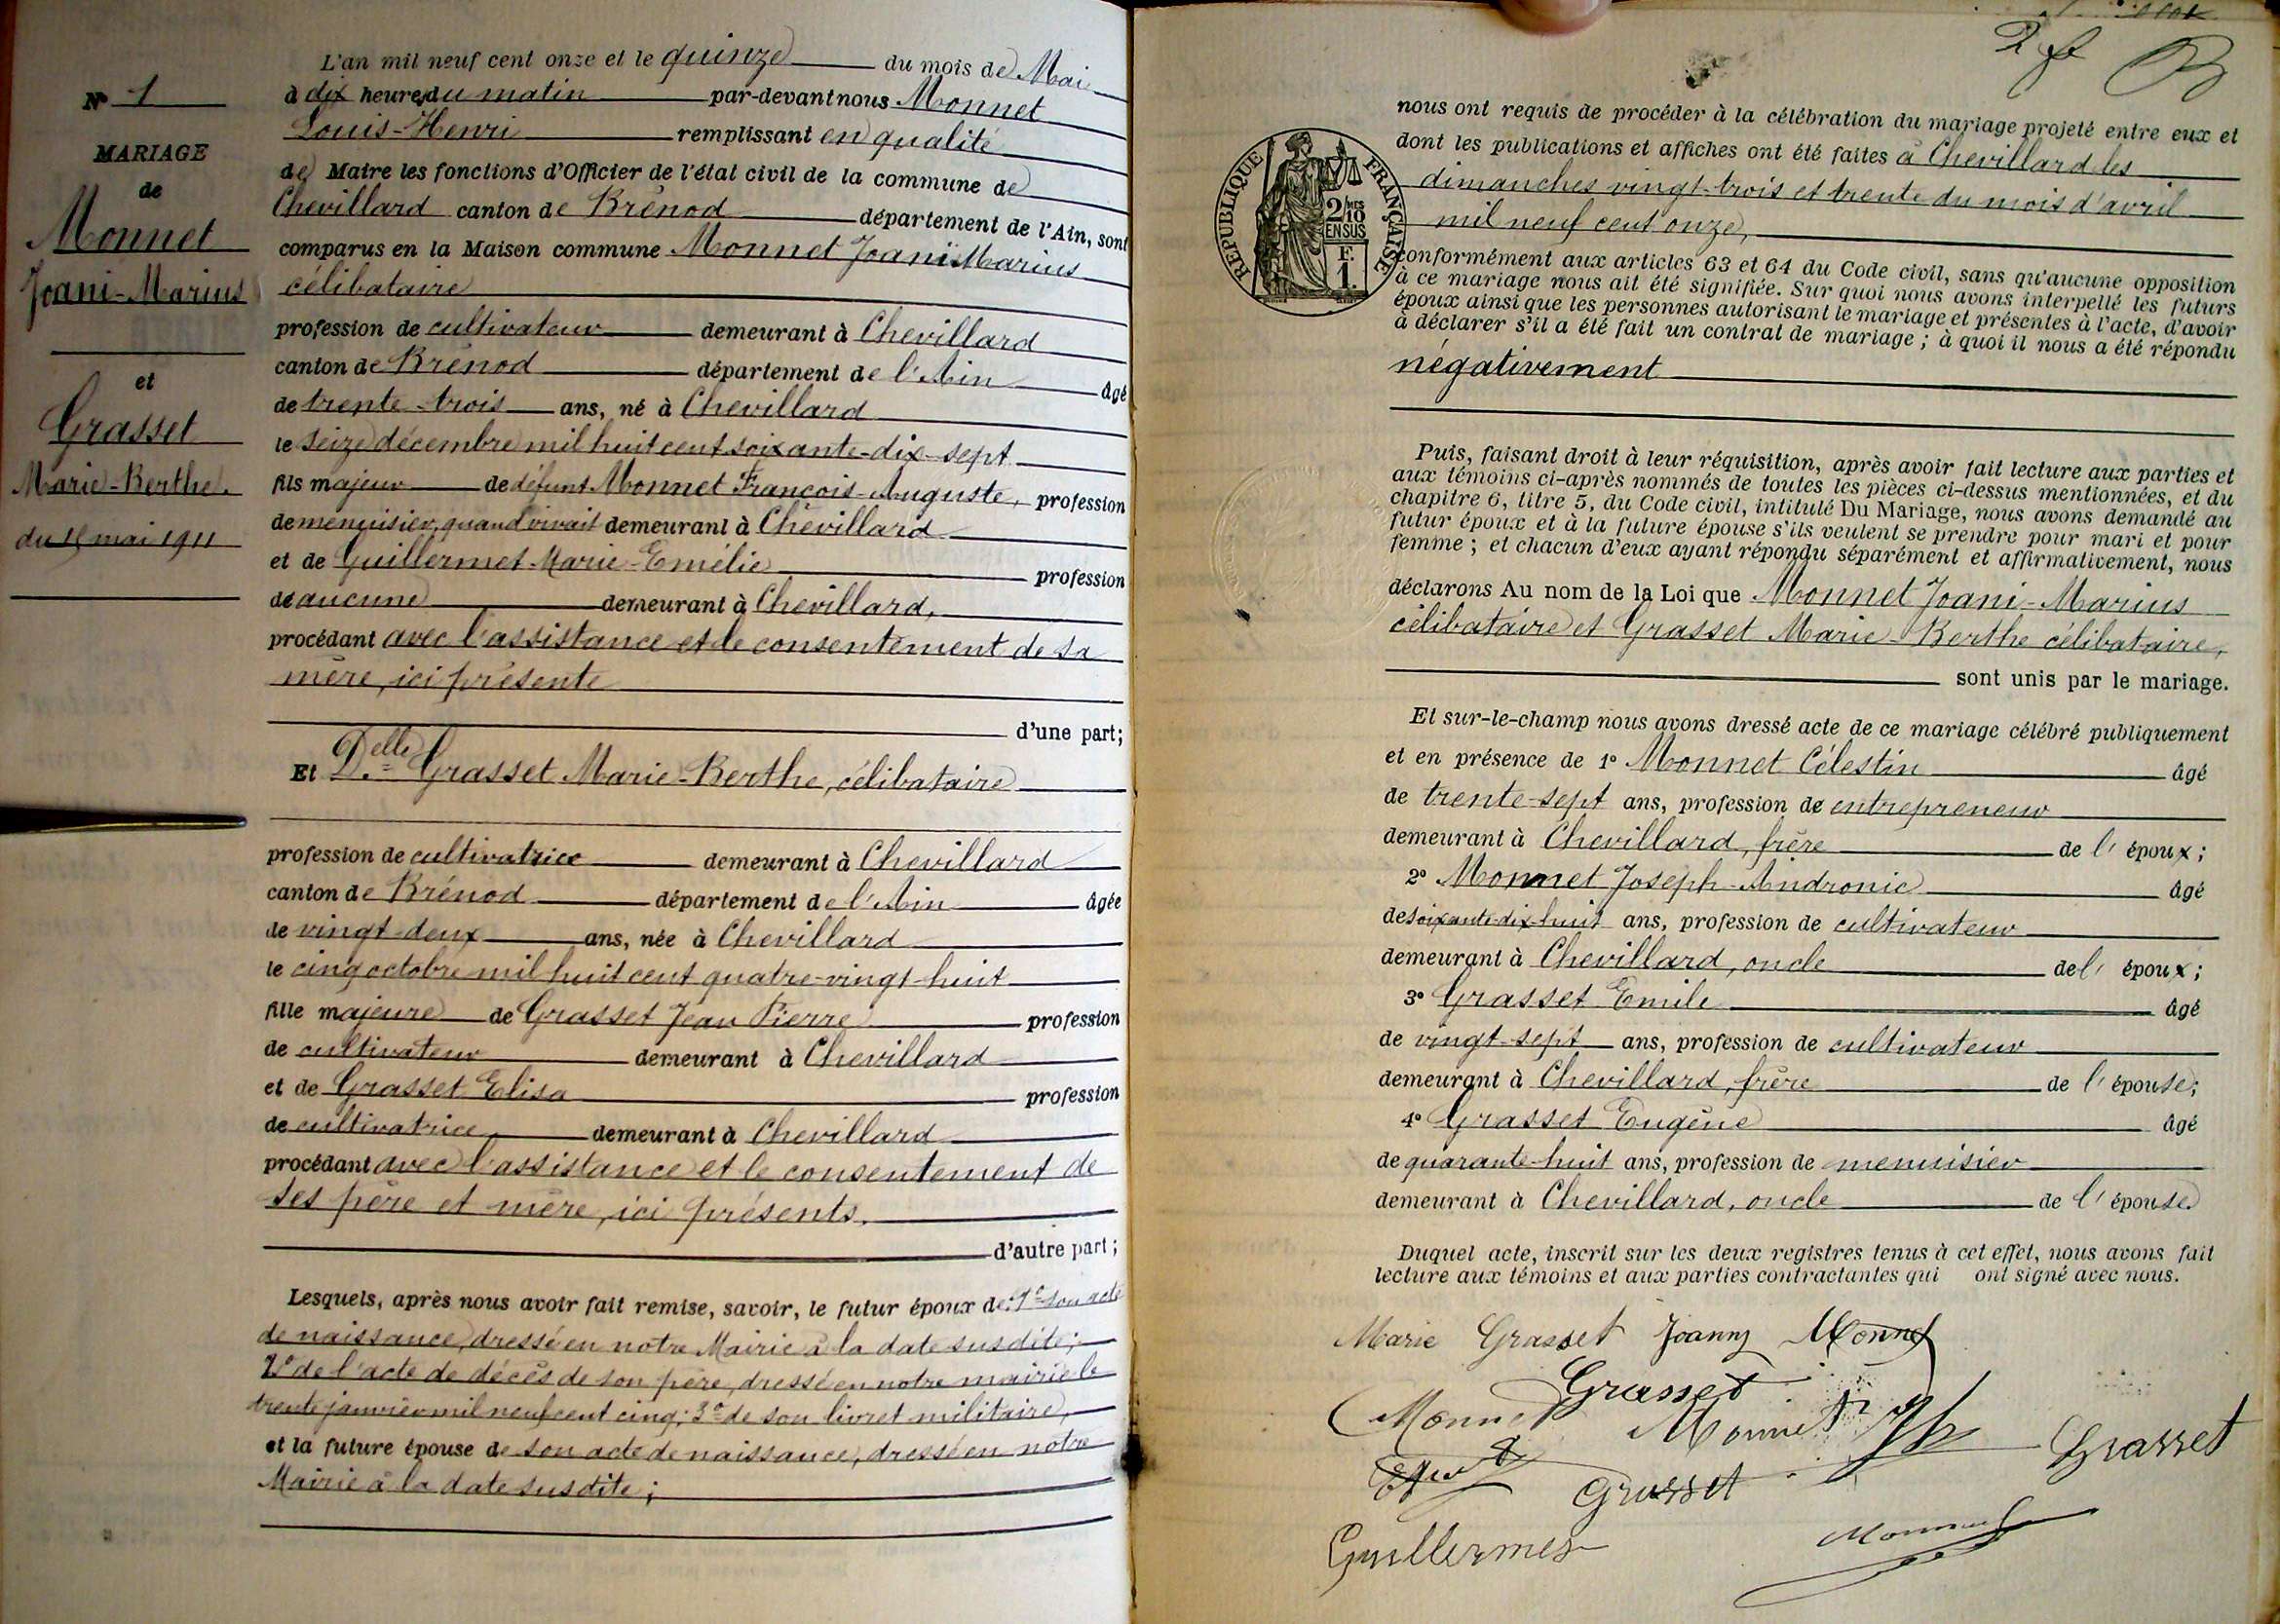 N° 1
MARIAGE
de
Monnet
Joani-Marius
et
Grasset
Marie-Berthe.
du 15 mai 1911
L'an mil neuf cent onze et le quinze du mois de Mai
à dix heures du matin par-devant nous Monnet
Louis-Henri remplissant en qualité
de Maire les fonctions d'Officier de l'état civil de la commune de
Chevillard canton de Brénod département de l'Ain, sont
comparus en la Maison commune Monnet Joani Marius
célibataire
profession de cultivateur demeurant à Chevillard
canton de Brénod département de l'Ain âgé
de trente-trois ans, né à Chevillard
le seize décembre mil huit cent soixante-dix-sept
fils majeur de défunt Monnet François-Auguste, profession
de menuisier, quand vivait demeurant à Chevillard
et de Guillermet Marie-Emélie profession
de aucune demeurant à Chevillard,
procédant avec l'assistance et le consentement de sa
mère, ici présente
d'une part;
Et Delle Grasset Marie-Berthe, célibataire
profession de cultivatrice demeurant à Chevillard
canton de Brénod département de l'Ain âgée
de vingt-deux ans, née à Chevillard
le cinq octobre mil huit cent quatre-vingt-huit
fille majeure de Grasset Jean Pierre profession
de cultivateur demeurant à Chevillard
et de Grasset Elisa profession
de cultivatrice demeurant à Chevillard
procédant avec l'assistance et le consentement de
ses père et mère, ici présents.
d'autre part;
Lesquels, après nous avoir fait remise, savoir, le futur époux de: 1° son acte
de naissance, dressé en notre Mairie à la date susdite;
2° de l'acte de décès de son père, dressé en notre mairie le
trente janvier mil neuf cent cinq; 3° de son livret militaire,
et la future épouse de son acte de naissance, dressé en notre
Mairie à la date susdite;
2 f
RÉPUBLIQUE FRANÇAISE
2/10
EN SUS
F.
1.
nous ont requis de procéder à la célébration du mariage projeté entre eux et
dont les publications et affiches ont été faites à Chevillard les
dimanches vingt-trois et trente du mois d'avril
mil neuf cent onze,
conformément aux articles 63 et 64 du Code civil, sans qu'aucune opposition
à ce mariage nous ait été signifiée. Sur quoi nous avons interpellé les futurs
époux ainsi que les personnes autorisant le mariage et présentes à l'acte, d'avoir
à déclarer s'il a été fait un contrat de mariage; à quoi il nous a été répondu
négativement
Puis, faisant droit à leur réquisition, après avoir fait lecture aux parties et
aux témoins ci-après nommés de toutes les pièces ci-dessus mentionnées, et du
chapitre 6, titre 5, du Code civil, intitulé Du Mariage, nous avons demandé au
futur époux et à la future épouse s'ils veulent se prendre pour mari et pour
femme; et chacun d'eux ayant répondu séparément et affirmativement, nous
déclarons Au nom de la Loi que Monnet Joani-Marius
célibataire et Grasset Marie-Berthe célibataire,
sont unis par le mariage.
Et sur-le-champ nous avons dressé acte de ce mariage célébré publiquement
et en présence de 1° Monnet Célestin âgé
de trente-sept ans, profession de entrepreneur
demeurant à Chevillard, frère de l'époux;
2° Monnet Joseph-Andronic âgé
de soixante-dix-huit ans, profession de cultivateur
demeurant à Chevillard, oncle de l'époux;
3° Grasset Emile âgé
de vingt-sept ans, profession de cultivateur
demeurant à Chevillard, frère de l'épouse;
4° Grasset Eugène âgé
de quarante-huit ans, profession de menuisier
demeurant à Chevillard, oncle de l'épouse
Duquel acte, inscrit sur les deux registres tenus à cet effet, nous avons fait
lecture aux témoins et aux parties contractantes qui ont signé avec nous.
Marie Grasset Joanny Monnet
Grasset
Monnet Monnet
Grasset
Grasset
Guillermet
Monnet